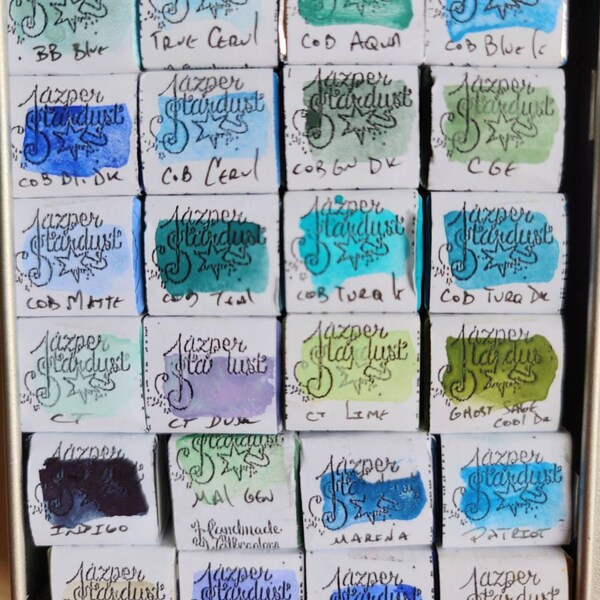 BB BLUE
TRUE CERUL
COB AQUA
COB BLUE
Jazper
Stardust
COB BL. DK
Jazper
Stardust
COB CERUL
Jazper
Stardust
COB GN DK
Jazper
Stardust
CGE
Jazper
Stardust
COB MATTE
Jazper
Stardust
COB TEAL
Jazper
Stardust
COB TURQ
Jazper
Stardust
COB TURQ DK
Jazper
Stardust
CT
Jazper
Stardust
CT DUSK
Jazper
Stardust
CT LIME
Jazper
Stardust
GHOST SAGE
COOL DK
Jazper
Stardust
INDIGO
Stardust
MAL GEN
Handmade
Watercolors
Jazper
Stardust
MARENA
Jazper
Stardust
PATRIOT
Jazper
Stardust
Jazper
Stardust
Jazper
Stardust
Jazper
Stardust